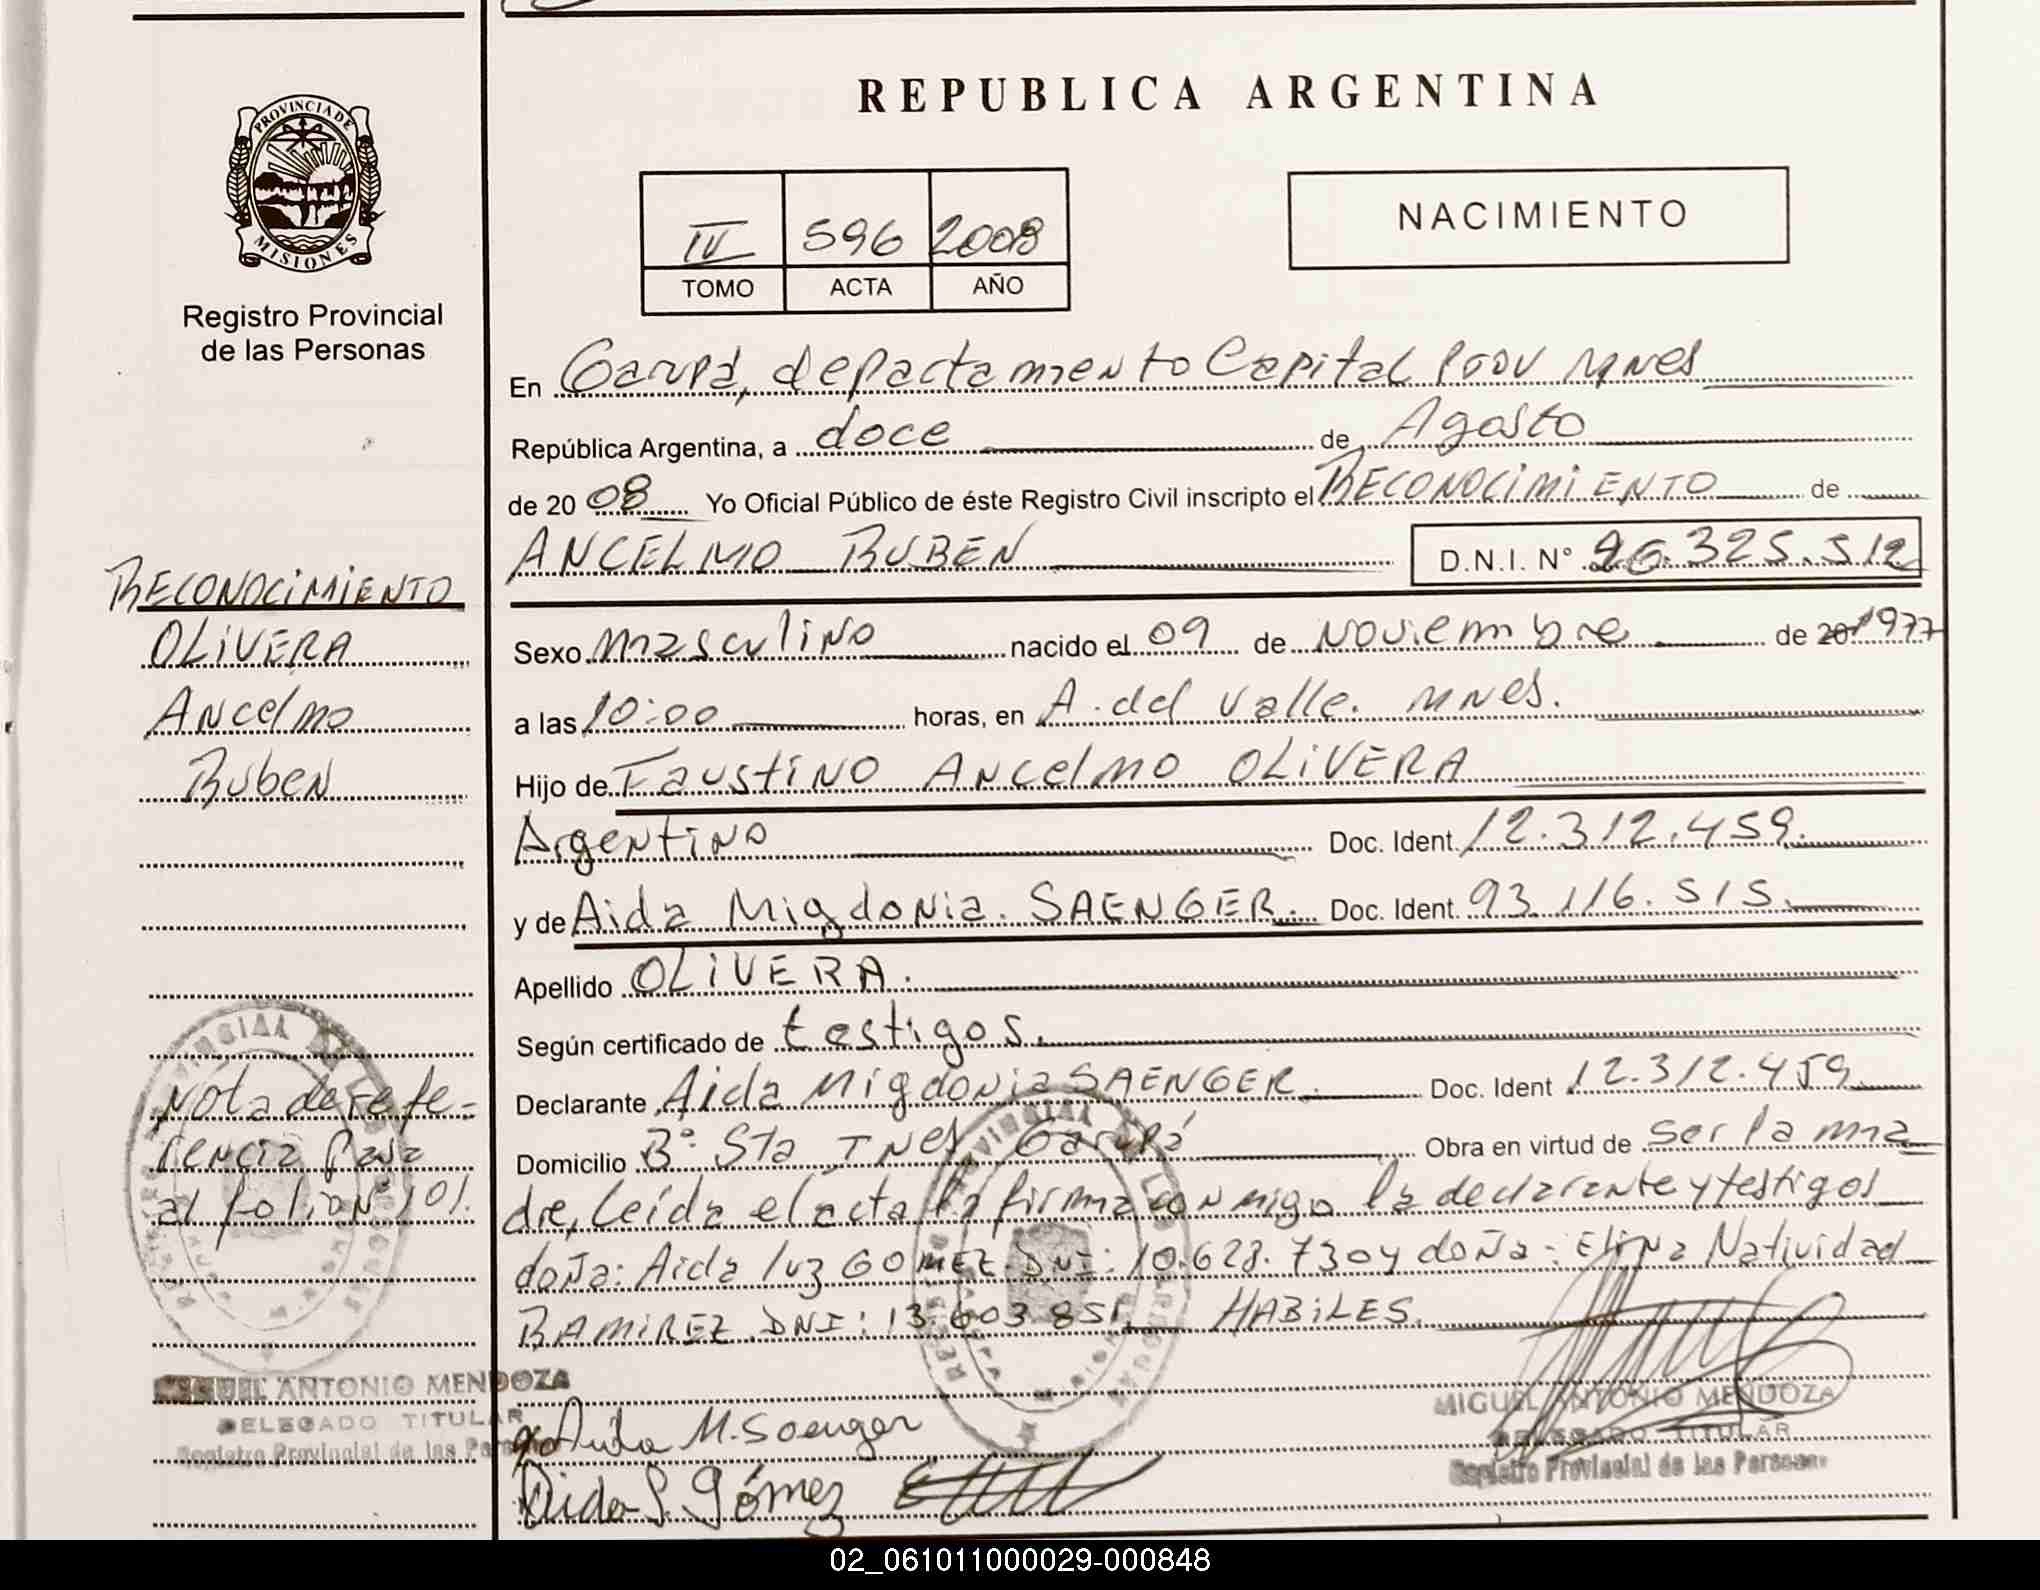 REPUBLICA ARGENTINA
PROVINCIA DE
MISIONES
Registro Provincial
de las Personas
IV 596 2008
TOMO ACTA AÑO
NACIMIENTO
En Garupá, departamento Capital Prov Mnes
República Argentina, a doce de Agosto
de 2008 Yo Oficial Público de éste Registro Civil inscripto el RECONOCIMIENTO de
ANCELMO RUBEN D.N.I. N° 26.325.512
Sexo masculino nacido el 09 de Noviembre de 20 1977
a las 10:00 horas, en A. del Valle. Mnes.
Hijo de Faustino Ancelmo OLIVERA
Argentino Doc. Ident. 12.312.459.
y de Aida Migdonia. SAENGER. Doc. Ident. 93.116.515.
Apellido OLIVERA.
Según certificado de testigos.
Declarante Aida Migdonia SAENGER. Doc. Ident 12.312.459.
Domicilio B° Sta INes Garupá Obra en virtud de ser la ma
dre, Leída el acta la firma conmigo la declarante y testigos
doña: Aida luz GOMEZ DNI: 10.628.730 y doña: Elina Natividad
RAMIREZ DNI: 13.603.851. HABILES.
RECONOCIMIENTO
OLIVERA
Ancelmo
Ruben
Nota de refe-
rencia pasa
al folio N° 101.
MIGUEL ANTONIO MENDOZA
DELEGADO TITULAR
Registro Provincial de las Personas
Aida M. Saenger
Aida L. Gómez
MIGUEL ANTONIO MENDOZA
DELEGADO TITULAR
Registro Provincial de las Personas
02_061011000029-000848